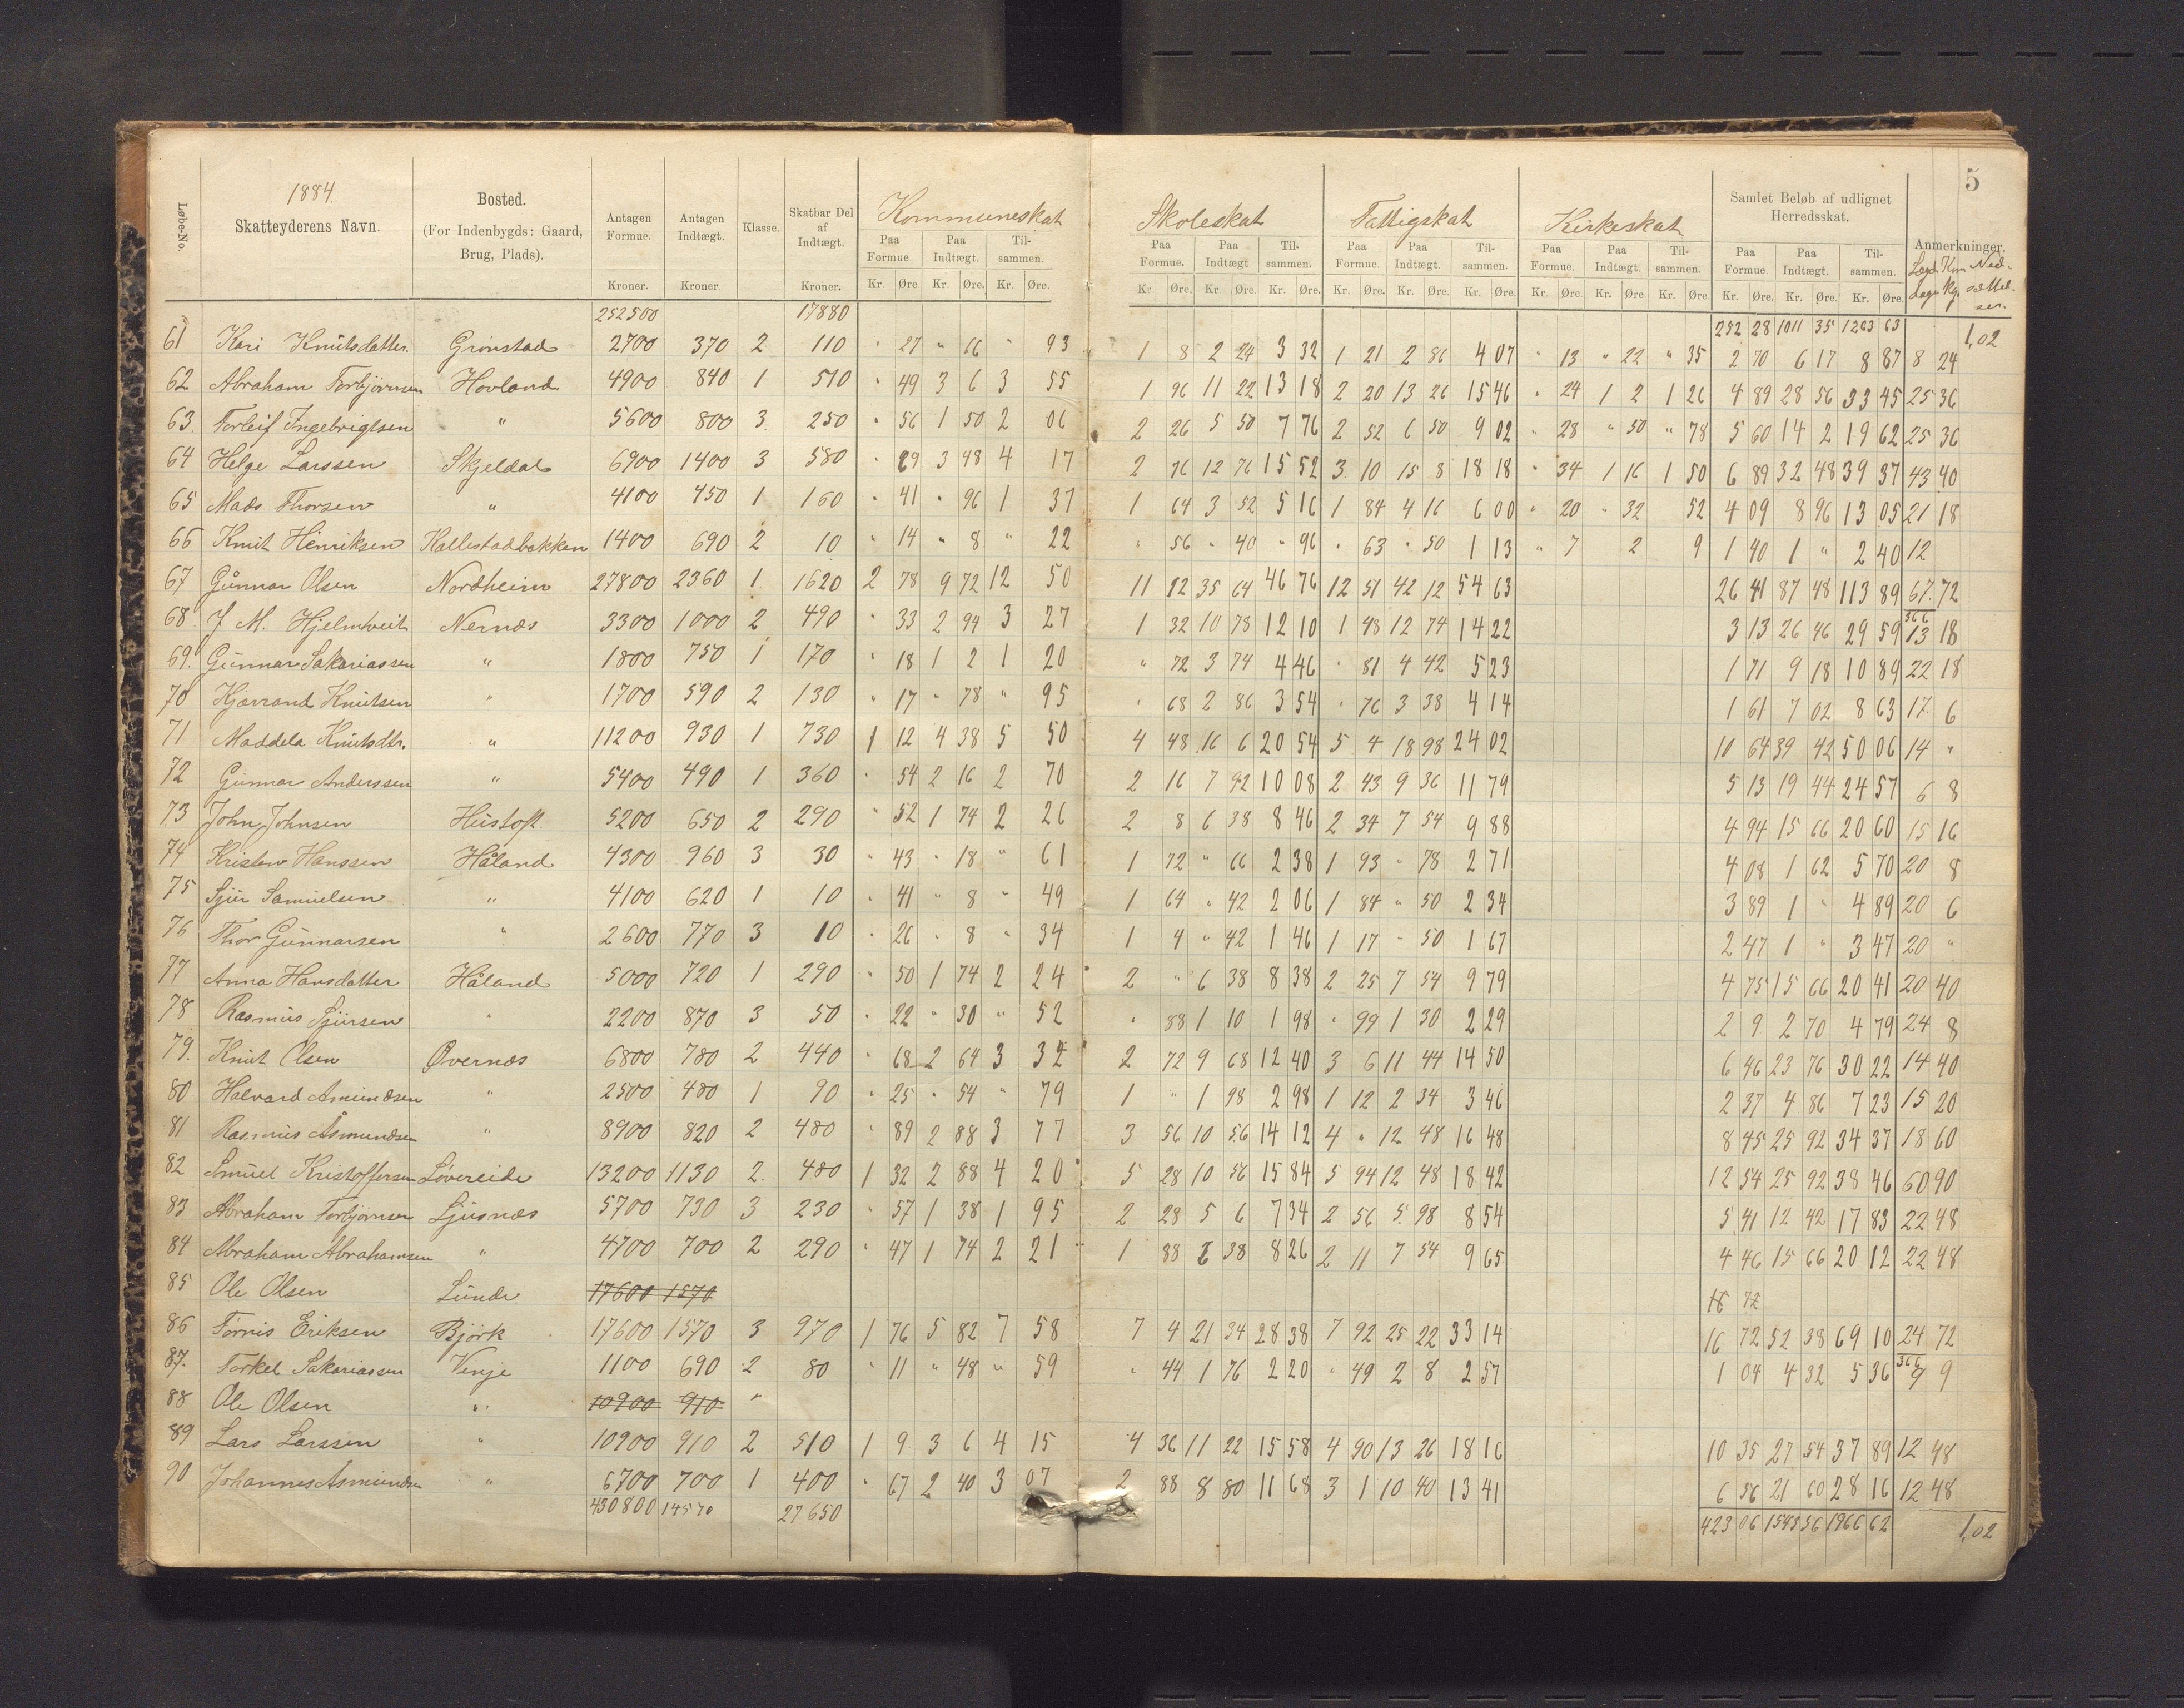 5
1884.
Løbe-No.
Skatteyderens Navn.
Bosted.
(For Indenbygds: Gaard, Brug, Plads).
Antagen Formue.
Kroner.
Antagen Indtægt.
Kroner
Klasse.
Skatbar Del af Indtægt.
Kroner.
Kommuneskat
Paa Formue Paa Indtægt. Tilsammen.
Kr. Øre. Kr. Øre. Kr. Øre.
Skoleskat
Paa Formue. Paa Indtægt Tilsammen.
Kr Øre. Kr. Øre. Kr. Øre.
Fattigskat
Paa Formue. Paa Indtægt. Tilsammen.
Kr. Øre. Kr. Øre. Kr. Øre.
Kirkeskat
Paa Formue. Paa Indtægt. Tilsammen.
Kr. Øre. Kr. Øre. Kr. Øre
Samlet Beløb af udlignet Herredsskat.
Paa Formue Paa Indtægt. Tilsammen.
Kr. Øre. Kr. Øre. Kr. Øre.
Anmerkninger.
252500 17880 252 28 1011 35 1263 63 1,02
61 Kari Knutsdatter. Grönstad 2700 370 2 110 " 27 " 66 " 93 1 8 2 24 3 32 1 21 2 86 4 07 " 13 " 22 " 35 2 70 6 17 8 87 8 24
62 Abraham Torbjørnsen Hovland 4900 840 1 510 " 49 3 6 3 55 1 96 11 22 13 18 2 20 13 26 15 46 " 24 1 2 1 26 4 89 28 56 33 45 25 36
63. Torleif Ingebrigtsen " 5600 800 3. 250 " 56 1 50 2 06 2 26 5 50 7 76 2 52 6 50 9 02 " 28 " 50 " 78 5 60 14 2 19 62 25 36
64 Helge Larssen Skjeldal 6900 1400 3 580 " 69 3 48 4 17 2 76 12 76 15 52 3 10 15 8 18 18 " 34 1 16 1 50 6 89 32 48 39 37 43 40
65 Mads Thorsen " 4100 450 1 160 " 41 " 96 1 37 1 64 3 52 5 16 1 84 4 16 6 00 " 20 " 32 52 4 09 8 96 13 05 21 18
66 Knut Henriksen Hallestadbakken 1400 690 2 10 " 14 " 8 " 22 " 56 " 40 " 96 " 63 " 50 1 13 " 7 2 9 1 40 1 " 2 40 12
67 Gunnar Olsen Nordheim 27800 2360 1 1620 2 78 9 72 12 50 11 12 35 64 46 76 12 51 42 12 54 63 26 41 87 48 113 89 67. 72
68. J M. Hjelmtveit Nernæs 3300 1000 2 490 " 33 2 94 3 27 1 32 10 78 12 10 1 48 12 74 14 22 3 13 26 46 29 59 13 18
69. Gunnar Sakariassen " 1800 750 1 170 " 18 1 2 1 20 " 72 3 74 4 46 " 81 4 42 5 23 1 71 9 18 10 89 22 18
70 Hjarrand Knutsen " 1700 590 2 130 " 17 " 78 " 95 " 68 2 86 3 54 " 76 3 38 4 14 1 61 7 02 8 63 17. 6
71 Maddela Knutsdtr. " 11200 930 1 730 1 12 4 38 5 50 4 48 16 6 20 54 5 4 18 98 24 02 10 64 39 42 50 06 14 "
72 Gunnar Anderssen " 5400 490 1 360 " 54 2 16 2 70 2 16 7 92 10 08 2 43 9 36 11 79 5 13 19 44 24 57 6 8
73 John Johnsen Hustoft 5200 650 2 290 " 52 1 74 2 26 2 8 6 38 8 46 2 34 7 54 9 88 4 94 15 66 20 60 15 16
74 Kristen Hanssen Håland 4300 960 3 30 " 43 " 18 " 61 1 72 " 66 2 38 1 93 " 78 2 71 4 08 1 62 5 70 20 8
75 Sjur Samuelsen " 4100 620 1 10 " 41 " 8 " 49 1 64 " 42 2 06 1 84 " 50 2 34 3 89 1 " 4 89 20 6
76 Thor Gunnarsen " 2600 770 3 10 " 26 " 8 " 34 1 4 " 42 1 46 1 17 " 50 1 67 2 47 1 " 3 47 20 "
77 Anna Hansdatter Håland 5000 720 1 290 " 50 1 74 2 24 2 " 6 38 8 38 2 25 7 54 9 79 4 75 15 66 20 41 20 40
78 Rasmus Sjursen " 2200 870 3 50 " 22 " 30 " 52 " 88 1 10 1 98 " 99 1 30 2 29 2 9 2 70 4 79 24 8
79. Knut Olsen Øvernæs 6800 780 2 440 " 68 2 64 3 32 2 72 9 68 12 40 3 6 11 44 14 50 6 46 23 76 30 22 14 40
80 Halvard Amundsen " 2500 480 1 90 " 25 " 54 " 79 1 " 1 98 2 98 1 12 2 34 3 46 2 37 4 86 7 23 15 20
81 Rasmus Åsmundsen " 8900 820 2 480 " 89 2 88 3 77 3 56 10 56 14 12 4 " 12 48 16 48 8 45 25 92 34 37 18 60
82 Smuel Kristoffersen Løvereide 13200 1130 2. 480 1 32 2 88 4 20 5 28 10 56 15 84 5 94 12 48 18 42 12 54 25 92 38 46 60 90
83 Abraham Torbjørnsen Ljusnæs 5700 730 3 230 " 57 1 38 1 95 2 28 5 6 7 34 2 56 5 98 8 54 5 41 12 42 17 83 22 48
84 Abraham Abrahamsen " 4700 700 2 290 " 47 1 74 2 21 1 88 6 38 8 26 2 11 7 54 9 65 4 46 15 66 20 12 22 48
85 Ole Olsen Lunde 17600 1570 16 72
86 Tørnis Eriksen Bjørk 17600 1570 3 970 1 76 5 82 7 58 7 4 21 34 28 38 7 92 25 22 33 14 16 72 52 38 69 10 24 72
87. Torkel Sakariassen Vinje 1100 690 2 80 " 11 " 48 " 59 " 44 1 76 2 20 " 49 2 8 2 57 1 04 4 32 5 36 9 9
88 Ole Olsen " 10900 910 "
89 Lars Larssen " 10900 910 2 510 1 9 3 6 4 15 4 36 11 22 15 58 4 90 13 26 18 16 10 35 27 54 37 89 12 48
90 Johannes Asmundsen " 6700 700 1 400 " 67 2 40 3 07 2 88 8 80 11 68 3 1 10 40 13 41 6 36 21 60 28 16 12 48
430800 14570 27650 423 06 1543 56 1966 62 1,02